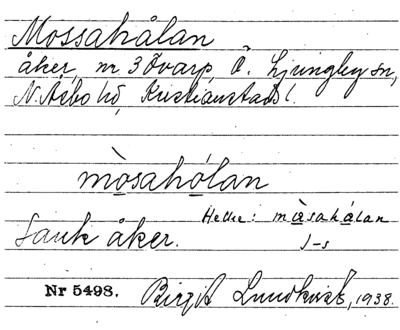 Mossahålan
åker, nr 3 Övarp, Ö. Ljungby sn,
N. Åsbo hd, Kristianstads l.
mòsahólan
Hellre: màsahálan
Sank åker. J-s
Nr 5498. Birgit Lundkvist, 1938.